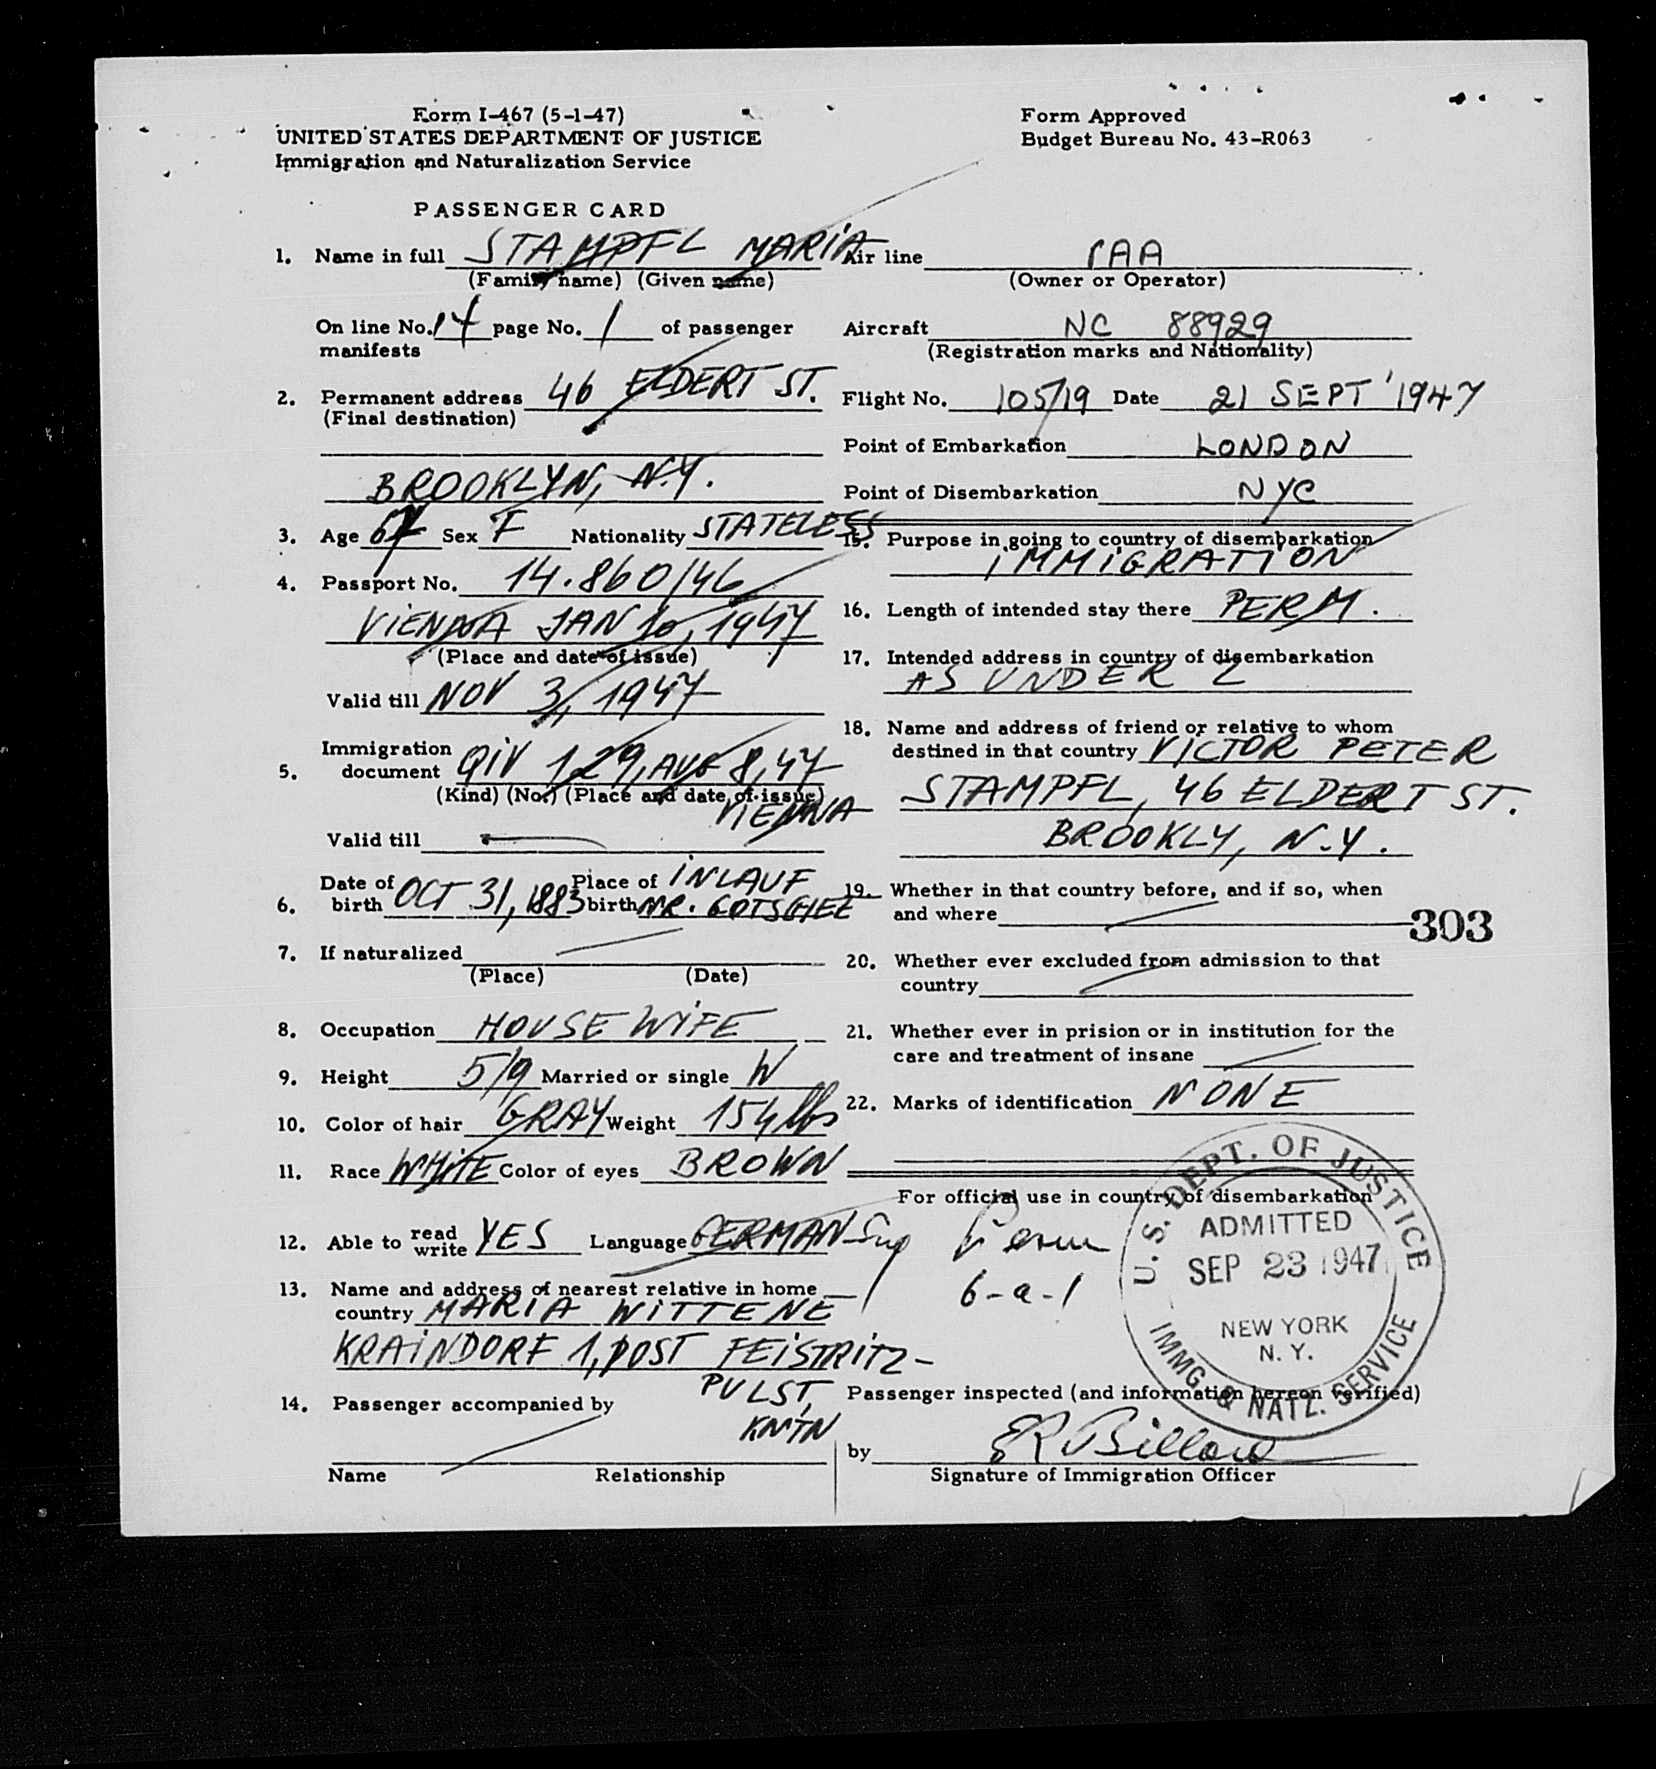 Form I-467 (5-1-47)
UNITED STATES DEPARTMENT OF JUSTICE
Immigration and Naturalization Service
Form Approved
Budget Bureau No. 43-R063
PASSENGER CARD
1. Name in full STAMPFL MARIA
(Family name) (Given name)
On line No. 14 page No. 1 of passenger
manifests
2. Permanent address 46 ELDERT ST.
(Final destination)
BROOKLYN, N.Y.
3. Age Sex F Nationality STATELESS
4. Passport No. 14.860/46
VIENNA JAN 10, 1947
(Place and date of issue)
Valid till NOV 3, 1947
Immigration
5. document QIV 129, AUG 8, 47
(Kind) (No.) (Place and date of issue)
VIENNA
Valid till
Date of Place of INLAUF
6. birth OCT 31, 1883 birth NR. GOTSCHEE
7. If naturalized
(Place) (Date)
8. Occupation HOUSEWIFE
9. Height 5/9 Married or single W
10. Color of hair GRAY Weight 154 lbs
11. Race WHITE Color of eyes BROWN
12. Able to read write YES Language GERMAN
13. Name and address of nearest relative in home
country MARIA WITTENE
KRAINDORF 1, POST FEISTRITZ-
PULST,
KNTN
14. Passenger accompanied by
Name Relationship
Air line
(Owner or Operator)
Aircraft NC 88929
(Registration marks and Nationality)
Flight No. 105/19 Date 21 SEPT '1947
Point of Embarkation LONDON
Point of Disembarkation NYC
15. Purpose in going to country of disembarkation
IMMIGRATION
16. Length of intended stay there PERM.
17. Intended address in country of disembarkation
AS UNDER 2
18. Name and address of friend or relative to whom
destined in that country VICTOR PETER
STAMPFL, 46 ELDERT ST.
BROOKLY, N.Y.
19. Whether in that country before, and if so, when
and where
303
20. Whether ever excluded from admission to that
country
21. Whether ever in prision or in institution for the
care and treatment of insane
22. Marks of identification NONE
For official use in country of disembarkation
Perm
6-a-1
U.S. DEPT. OF JUSTICE
ADMITTED
SEP 23 1947
NEW YORK
N. Y.
IMMG. & NATZ. SERVICE
Passenger inspected (and information hereon verified)
by
Signature of Immigration Officer